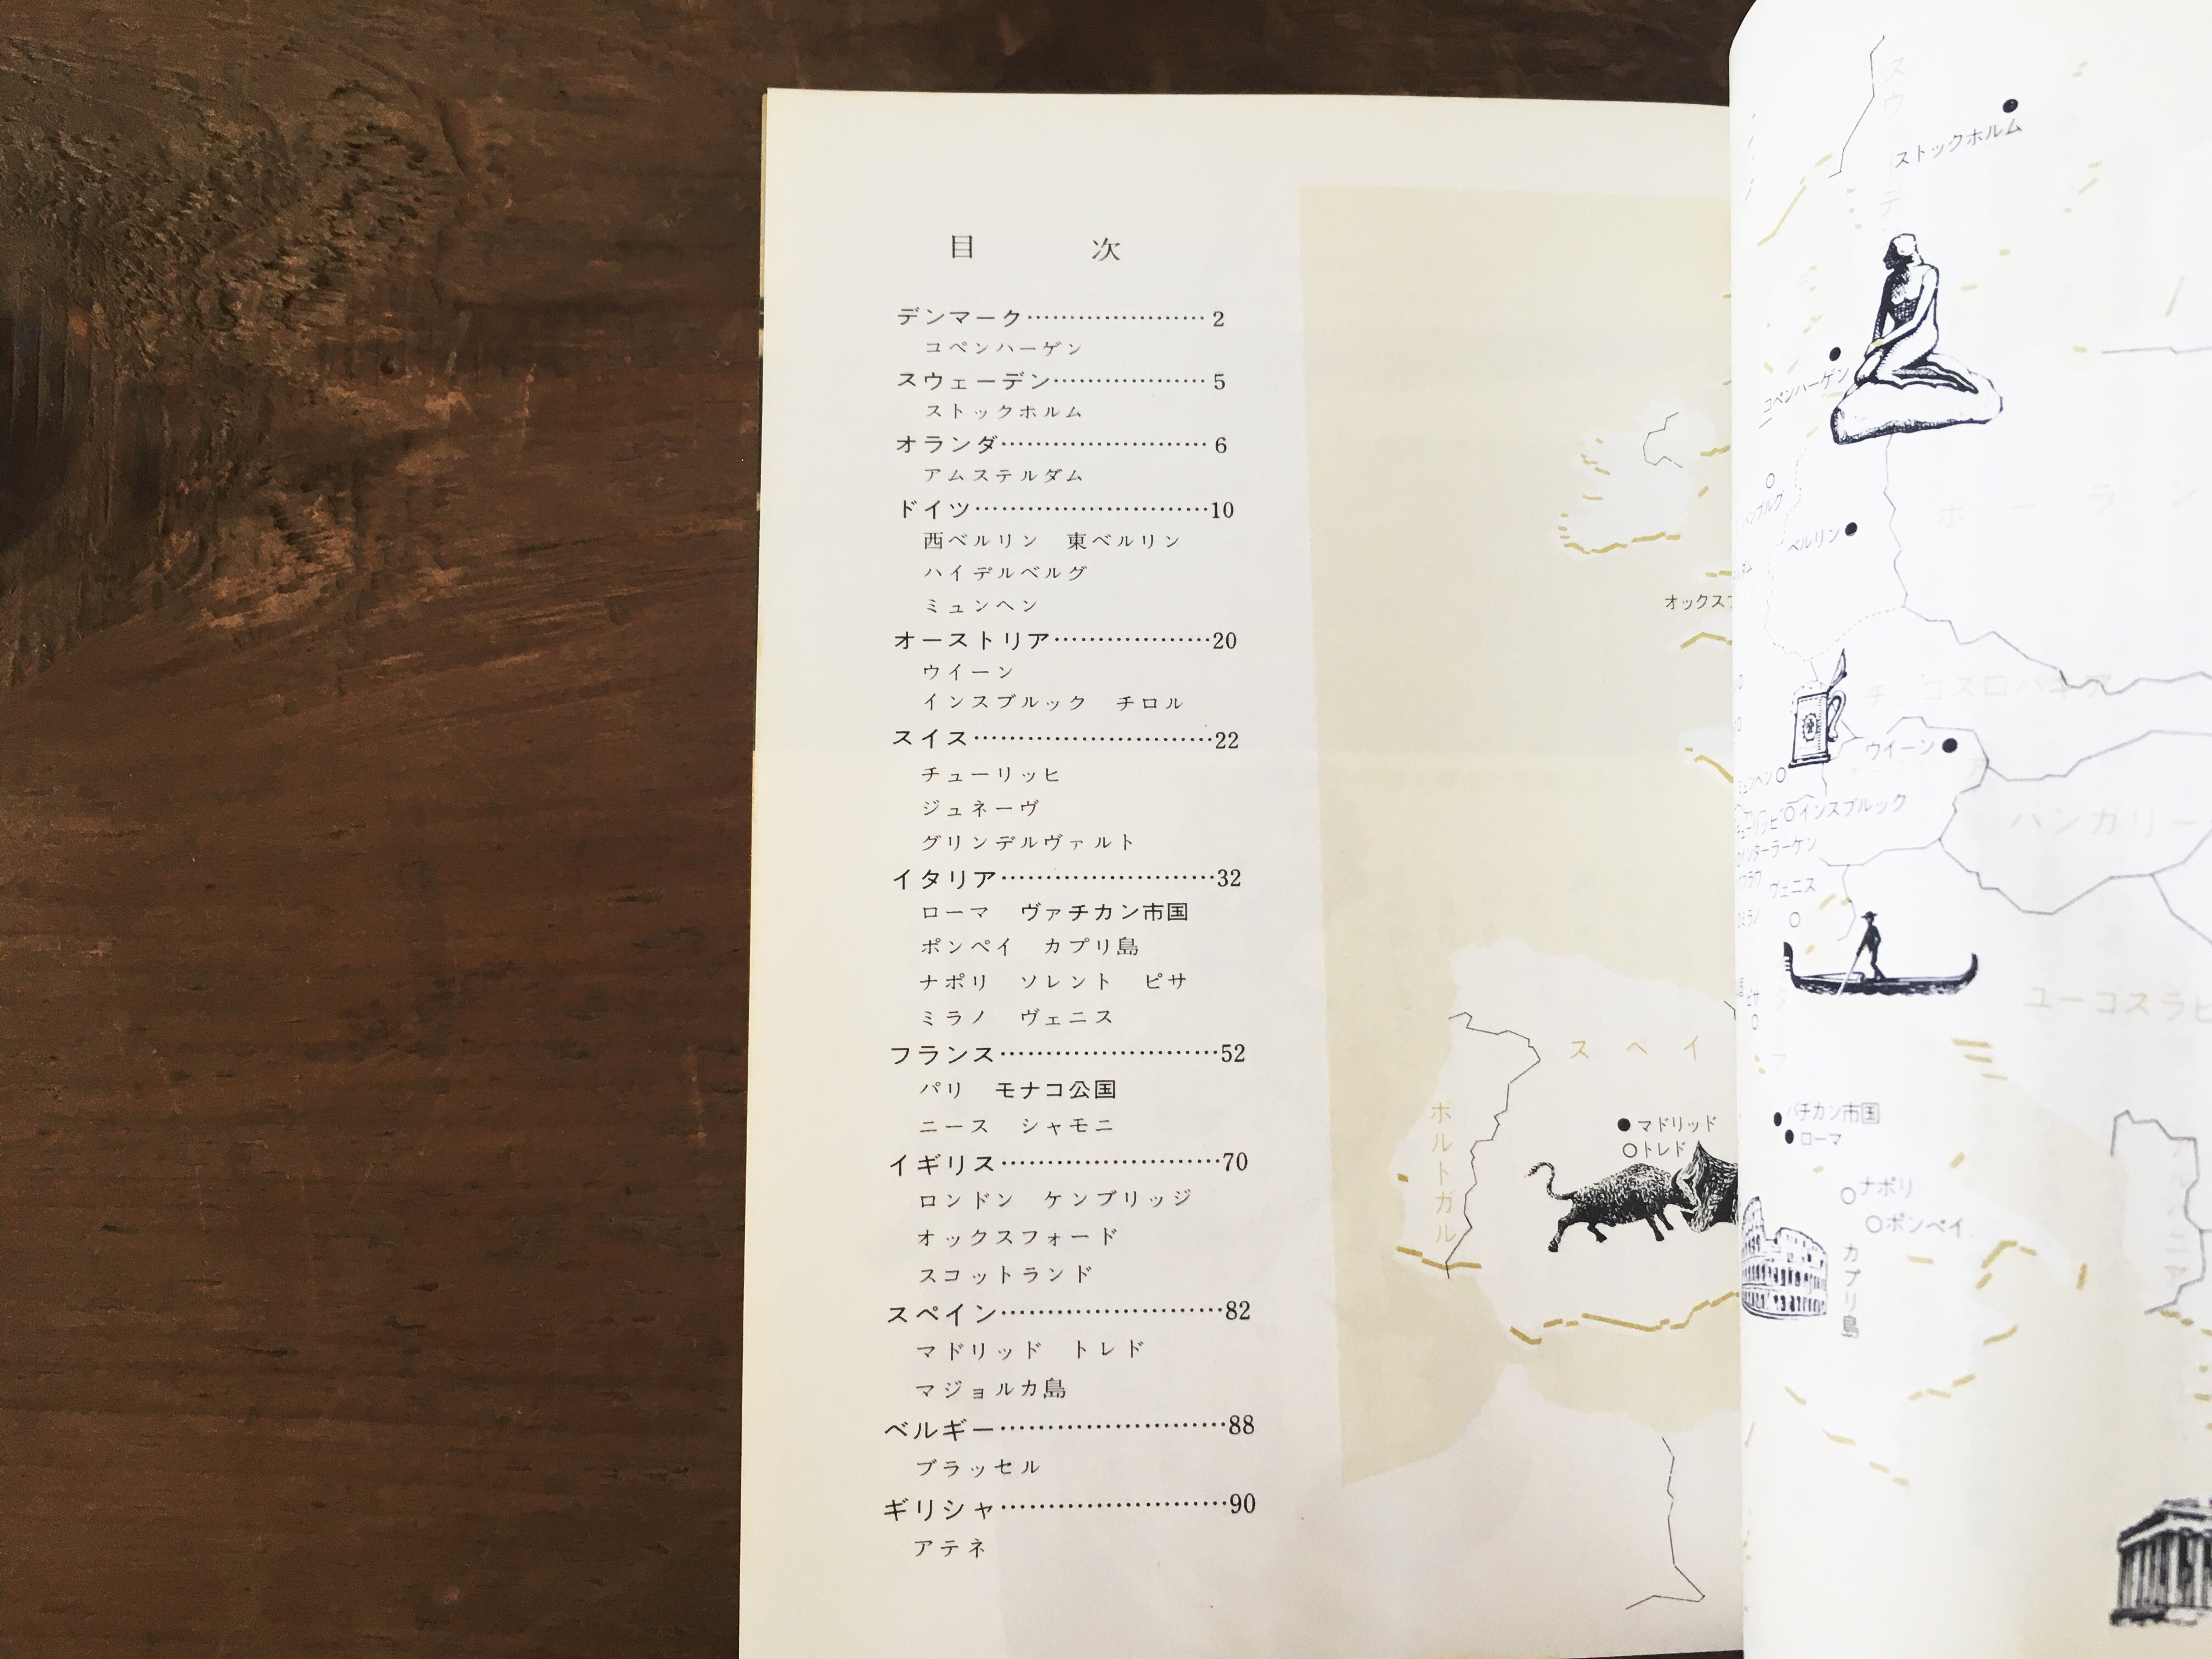 目 次
デンマーク…………………2
コペンハーゲン
スウェーデン………………5
ストックホルム
オランダ……………………6
アムステルダム
ドイツ………………………10
西ベルリン 東ベルリン
ハイデルベルグ
ミュンヘン
オーストリア………………20
ウイーン
インスブルック チロル
スイス………………………22
チューリッヒ
ジュネーヴ
グリンデルヴァルト
イタリア……………………32
ローマ ヴァチカン市国
ポンペイ カプリ島
ナポリ ソレント ピサ
ミラノ ヴェニス
フランス……………………52
パリ モナコ公国
ニース シャモニ
イギリス……………………70
ロンドン ケンブリッジ
オックスフォード
スコットランド
スペイン……………………82
マドリッド トレド
マジョルカ島
ベルギー……………………88
ブラッセル
ギリシャ……………………90
アテネ
オックスフ
スペイ
ポルトガル
マドリッド
トレド
ストックホルム
コペンハーゲン
ベルリン
ウイーン
インスブルック
ハンガリー
ヴェニス
ピサ
ユーゴスラビ
バチカン市国
ローマ
ナポリ
ポンペイ
カプリ島